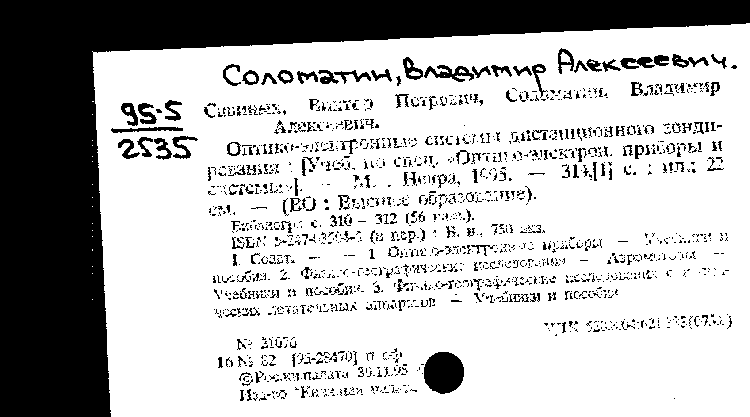 Соломатин, Владимир Алексеевич.
95-5
2535
Савиных, Виктор Петрович, Соломатин, Владимир
Алексеевич.
Оптико-электронные системы дистанционного зонди-
рования : [Учеб. по спец. «Оптико-электрон. приборы и
системы»]. — М. : Недра, 1995. — 313,[1] с. : ил.; 22
см. — (ВО : Высшее образование).
Библиогр.: с. 310 – 312 (56 назв.).
ISBN (в пер.) : Б. ц., 750 экз.
1. Оптико-электронные приборы — Учебники и
пособия. 2. Физико-географические исследования — Аэрометоды —
Учебники и пособия. 3. Физико-географические исследования с
ческих летательных аппаратов — Учебники и пособия
УДК
№ 21076
16 № 82 [95-28470] п оф
©Рос.кн.палата 30.11.95
Изд-во "Книжная палата